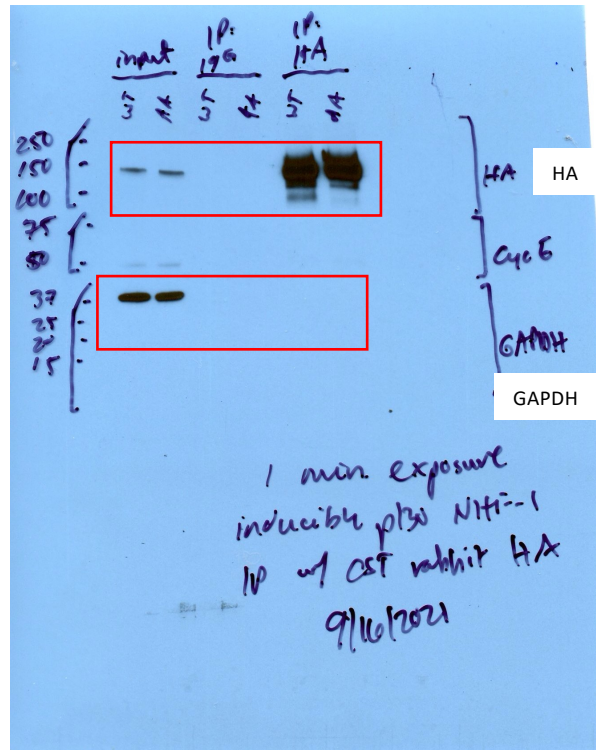 input IP: IgG IP: HA
250
150
100
75
50
37
25
20
15
HA
HA
Cyc E
GAPDH
GAPDH
1 min. exposure
inducible p130
IP w/ CST rabbit HA
9/16/2021